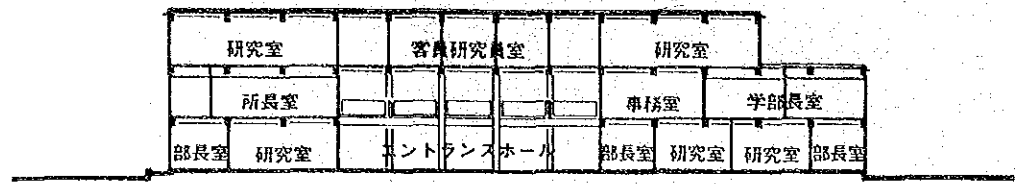 研究室 客員研究員室 研究室
所長室 事務室 学部長室
部長室 研究室 エントランスホール 部長室 研究室 研究室 部長室